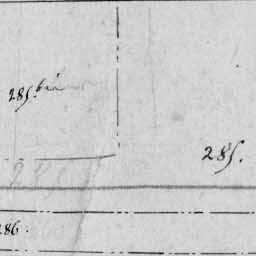 285. bis
285.
286.